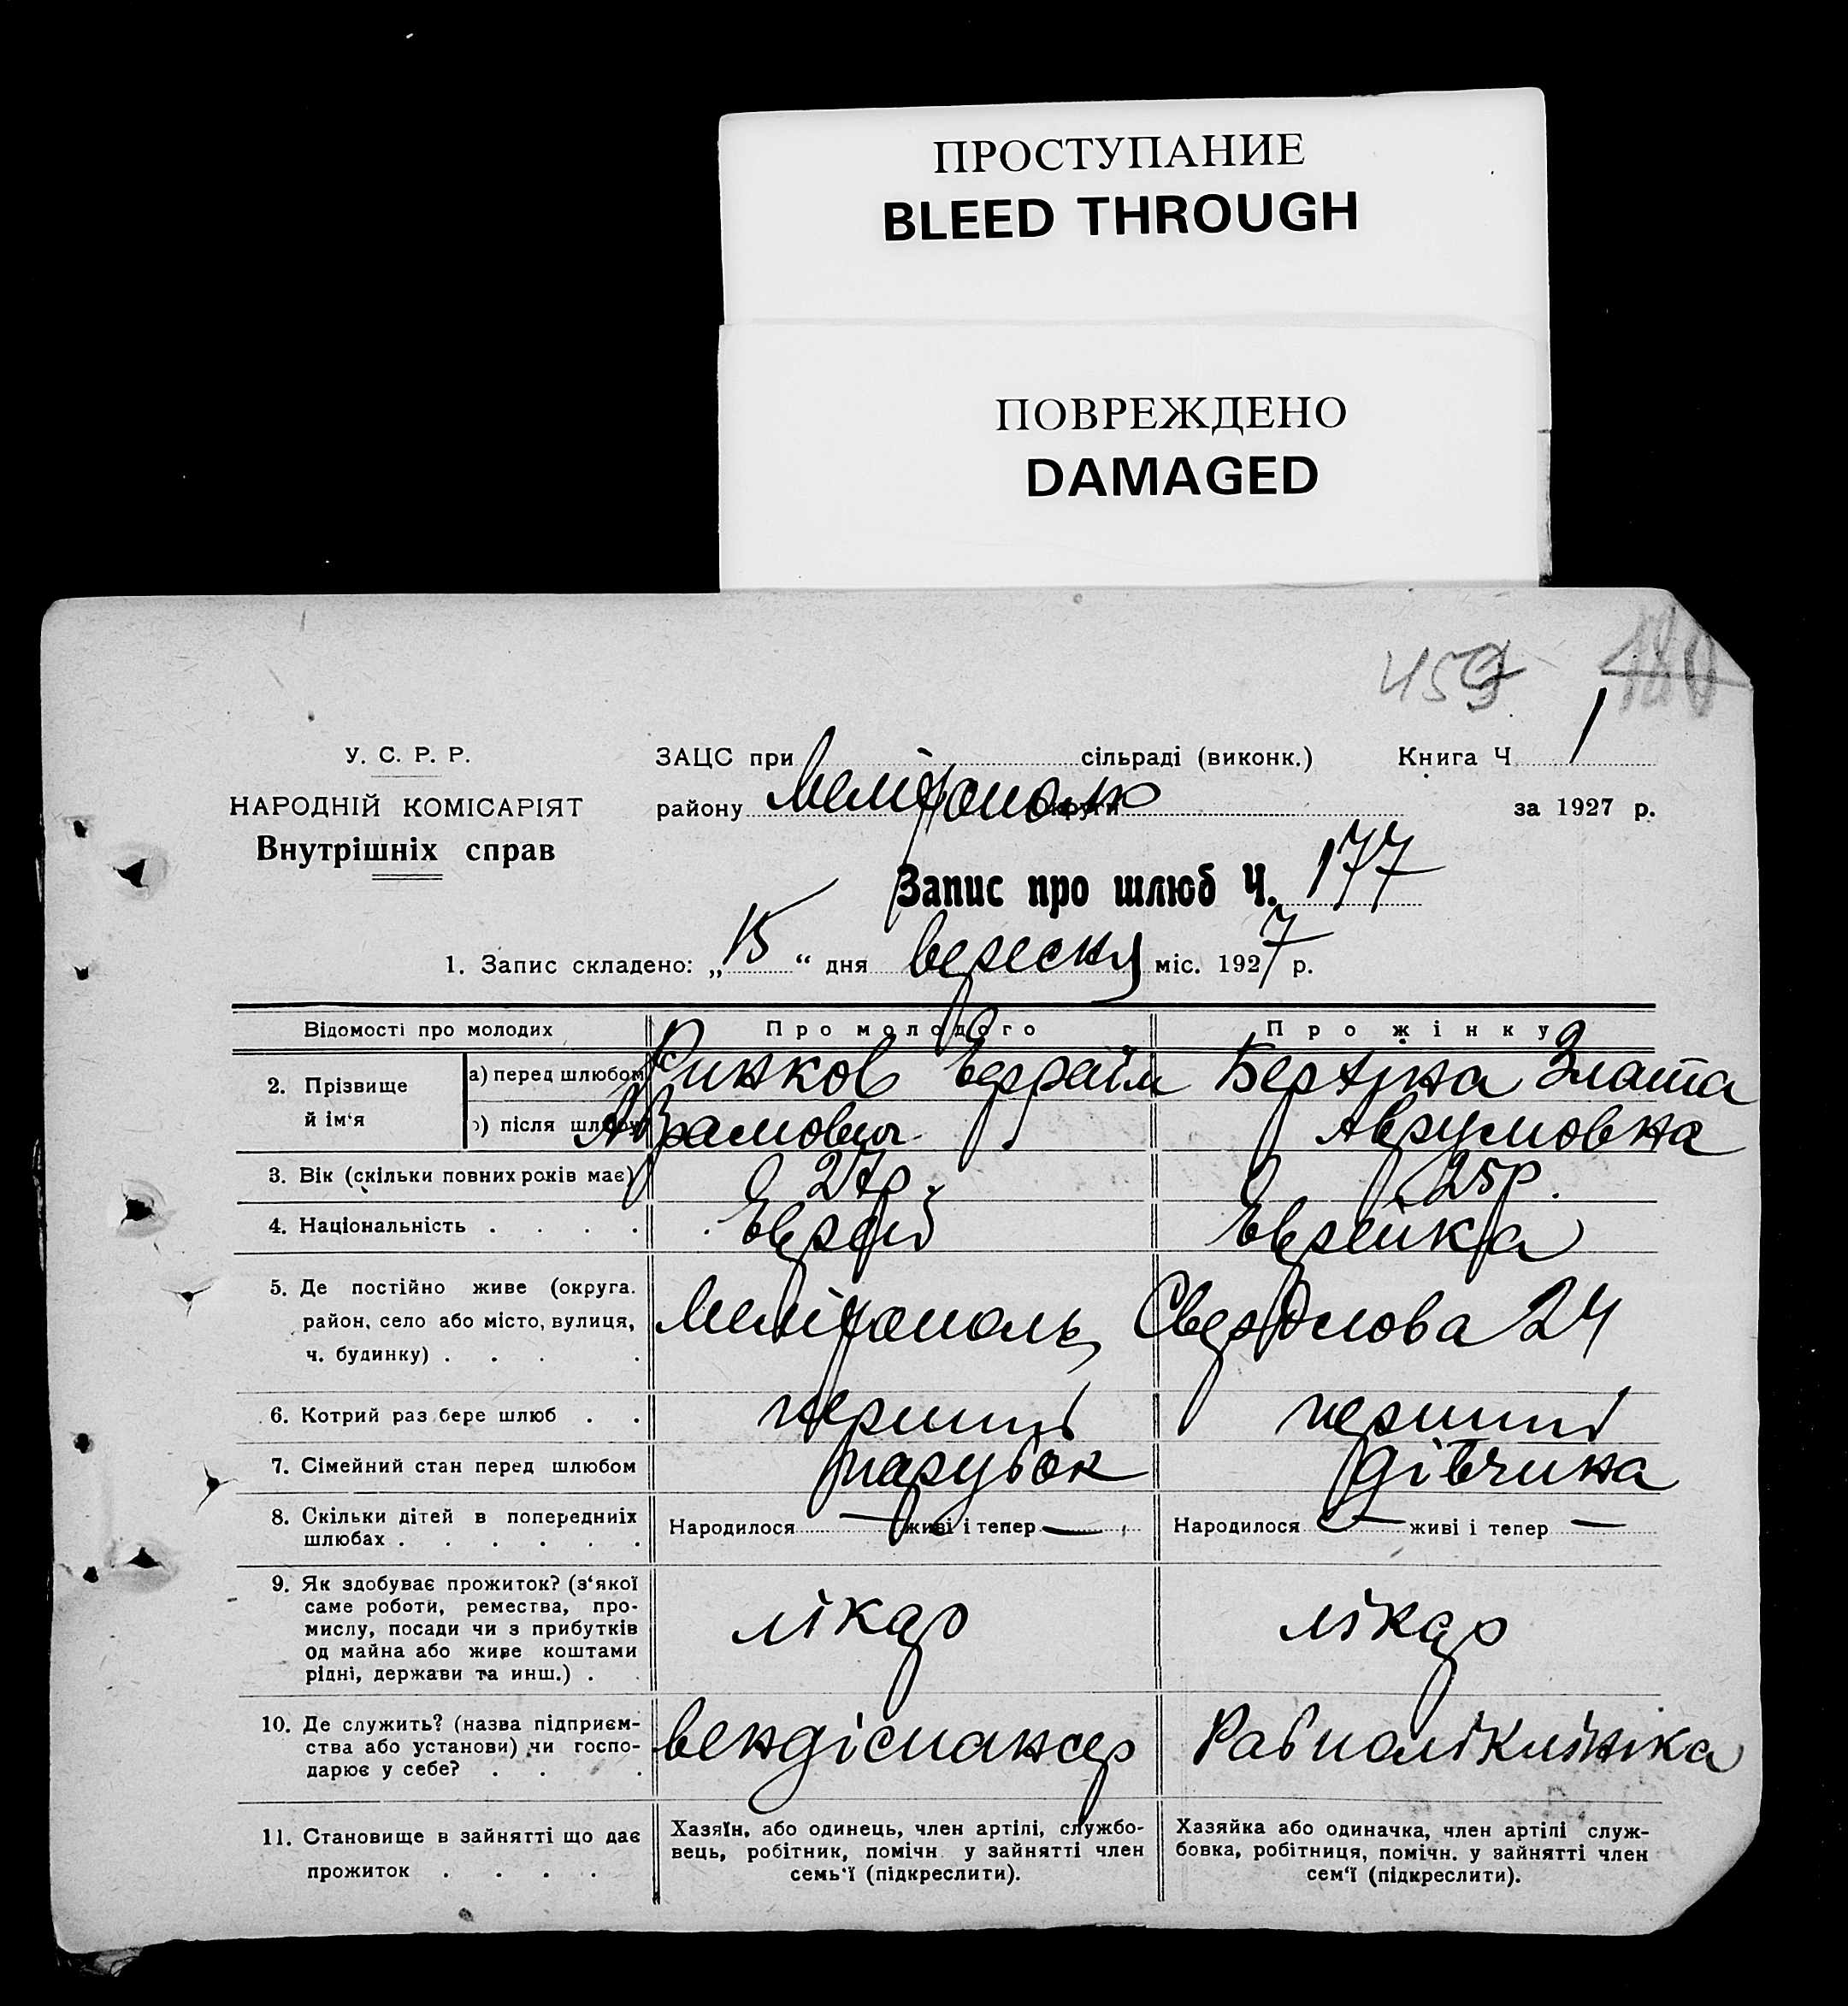 ПРОСТУПАНИЕ
BLEED THROUGH
ПОВРЕЖДЕНО
DAMAGED
459 180
У. С. Р. Р.
НАРОДНІЙ КОМІСАРІЯТ
Внутрішніх справ
ЗАЦС при сільраді (виконк.) Книга Ч 1
району округи за 1927 р.
Запис про шлюб Ч. 177
1. Запис складено: „15“ дня вересня міс. 1927 р.
Відомості про молодих Про молодого Про жінку
2. Прізвище й ім‘я
а) перед шлюбом
б) після шлюбу
Злата
Аврумовна
3. Вік (скільки повних років має) 27р. 25р.
4. Національність . . . . Еврей Еврейка
5. Де постійно живе (округа.
район, село або місто, вулиця,
ч. будинку) . . . .
Мелітополь, Свердлова 24
6. Котрий раз бере шлюб . . перший перший
7. Сімейний стан перед шлюбом парубок дівчина
8. Скільки дітей в попередниіх
шлюбах . . . . . .
Народилося — живі і тепер — Народилося — живі і тепер —
9. Як здобуває прожиток? (з‘якої
саме роботи, ремества, про-
мислу, посади чи з прибутків
од майна або живе коштами
рідні, держави та инш.) . .
лікар лікар
10. Де служить? (назва підприєм-
ства або установи) чи госпо-
дарює у себе? . . . .
вендіспансер Рабполіклініка
11. Становище в зайнятті що дає
прожиток . . . .
Хазяїн, або одинець, член артілі, службо-
вець, робітник, помічн. у зайнятті член
семь‘ї (підкреслити).
Хазяйка або одиначка, член артілі служ-
бовка, робітниця, помічн. у зайнятті член
сем‘ї (підкреслити).